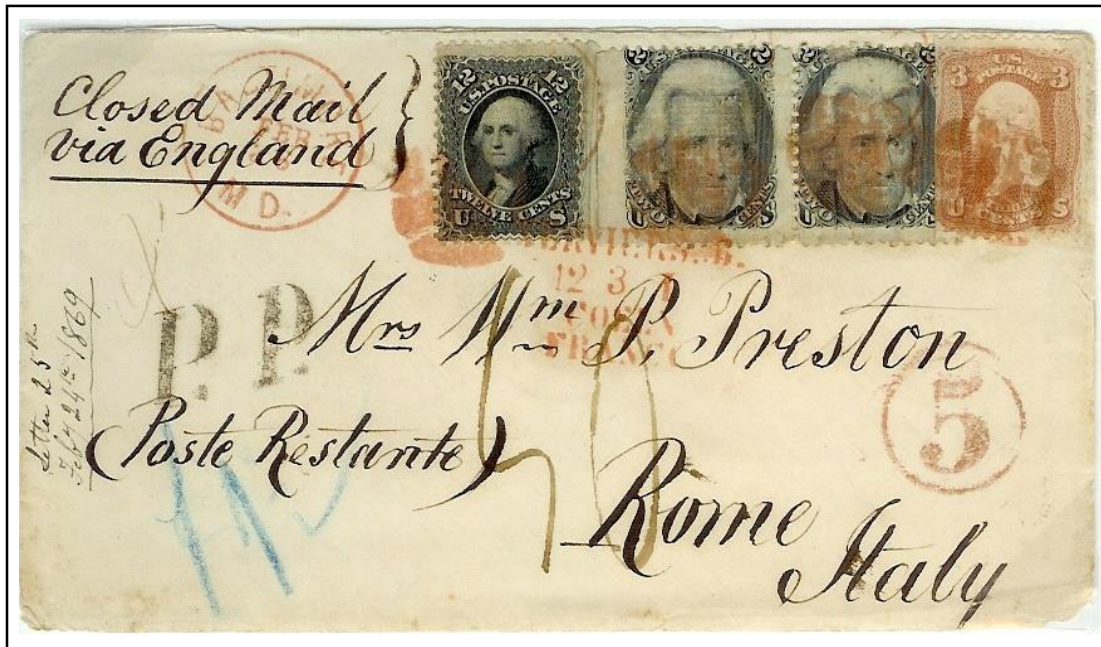 Closed Mail
via England
BALTIMORE
FEB
MD.
12 12
U.S. POSTAGE
TWELVE CENTS
U S
2 2
U.S. POSTAGE
TWO CENTS
U S
2 2
U.S. POSTAGE
TWO CENTS
U S
3 3
U.S.
POSTAGE
U S
CENTS
VERVIERS
12 3
FRANCO
P.P.
Mrs Wm P. Preston
(Poste Restante)
Rome
Italy
5
Letter 25th
Feby 24th 1869